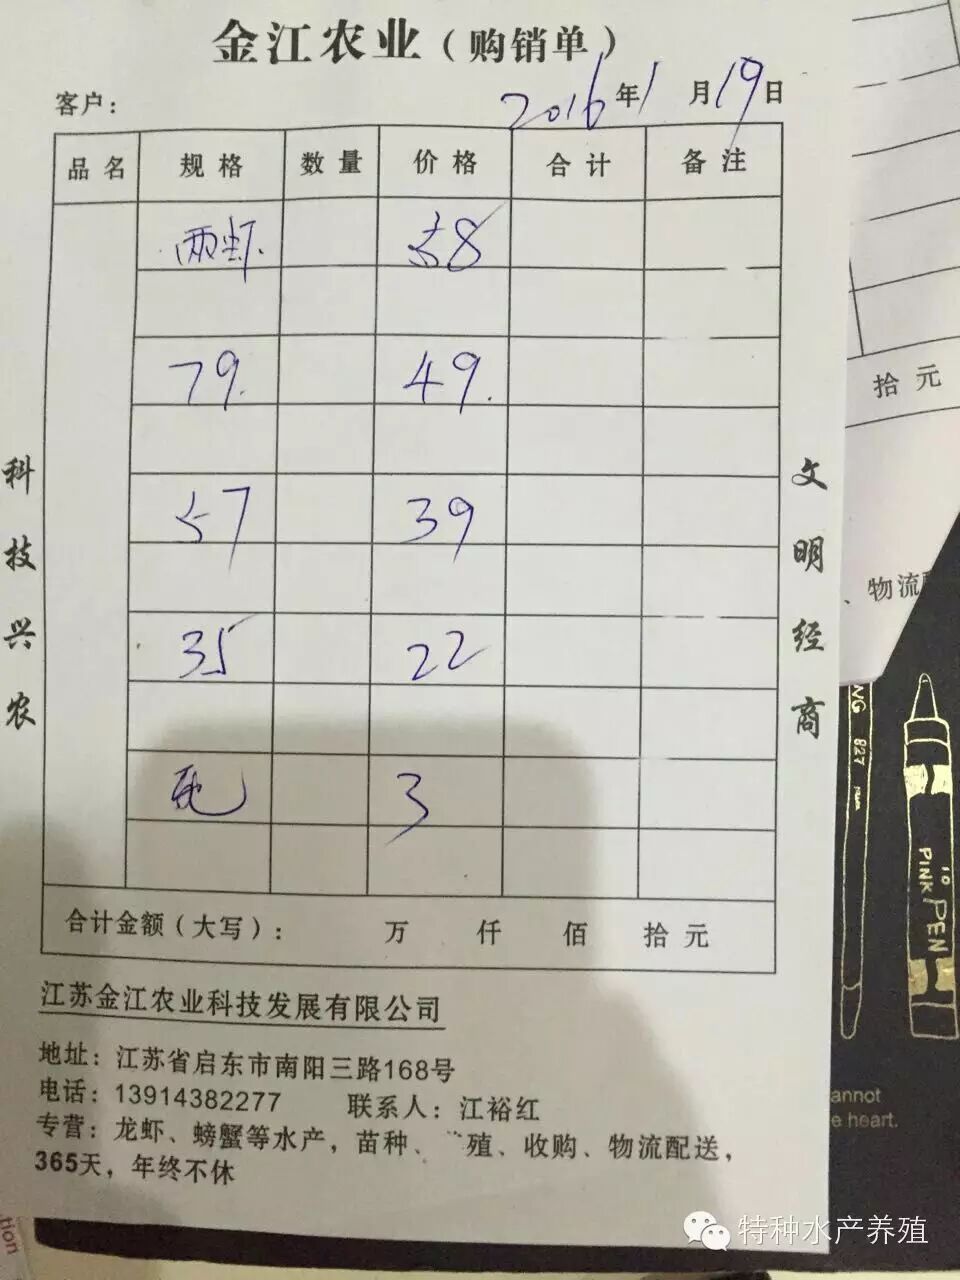 金江农业（购销单）
客户： 2016年1月19日
品名 规格 数量 价格 合计 备注
两虾 58
79. 49.
57 39
35 22
死 3
合计金额（大写）： 万 仟 佰 拾 元
科技兴农
文明经商
江苏金江农业科技发展有限公司
地址：江苏省启东市南阳三路168号
电话：13914382277 联系人：江裕红
专营：龙虾、螃蟹等水产，苗种、殖、收购、物流配送，
365天，年终不休
拾 元
、物流
NG 827
PINK PEN
annot
e heart.
特种水产养殖